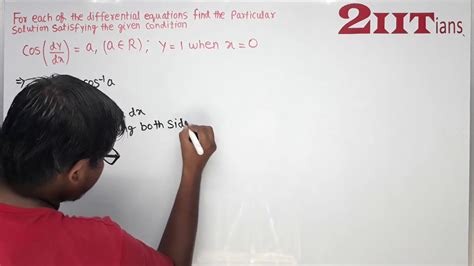 For each of the differential equations find the Particular
Solution Satisfying the given condition
2IITians
cos(dy/dx) = a, (a ∈ R); y = 1 when x = 0
⇒ cos⁻¹a
dx
both Side